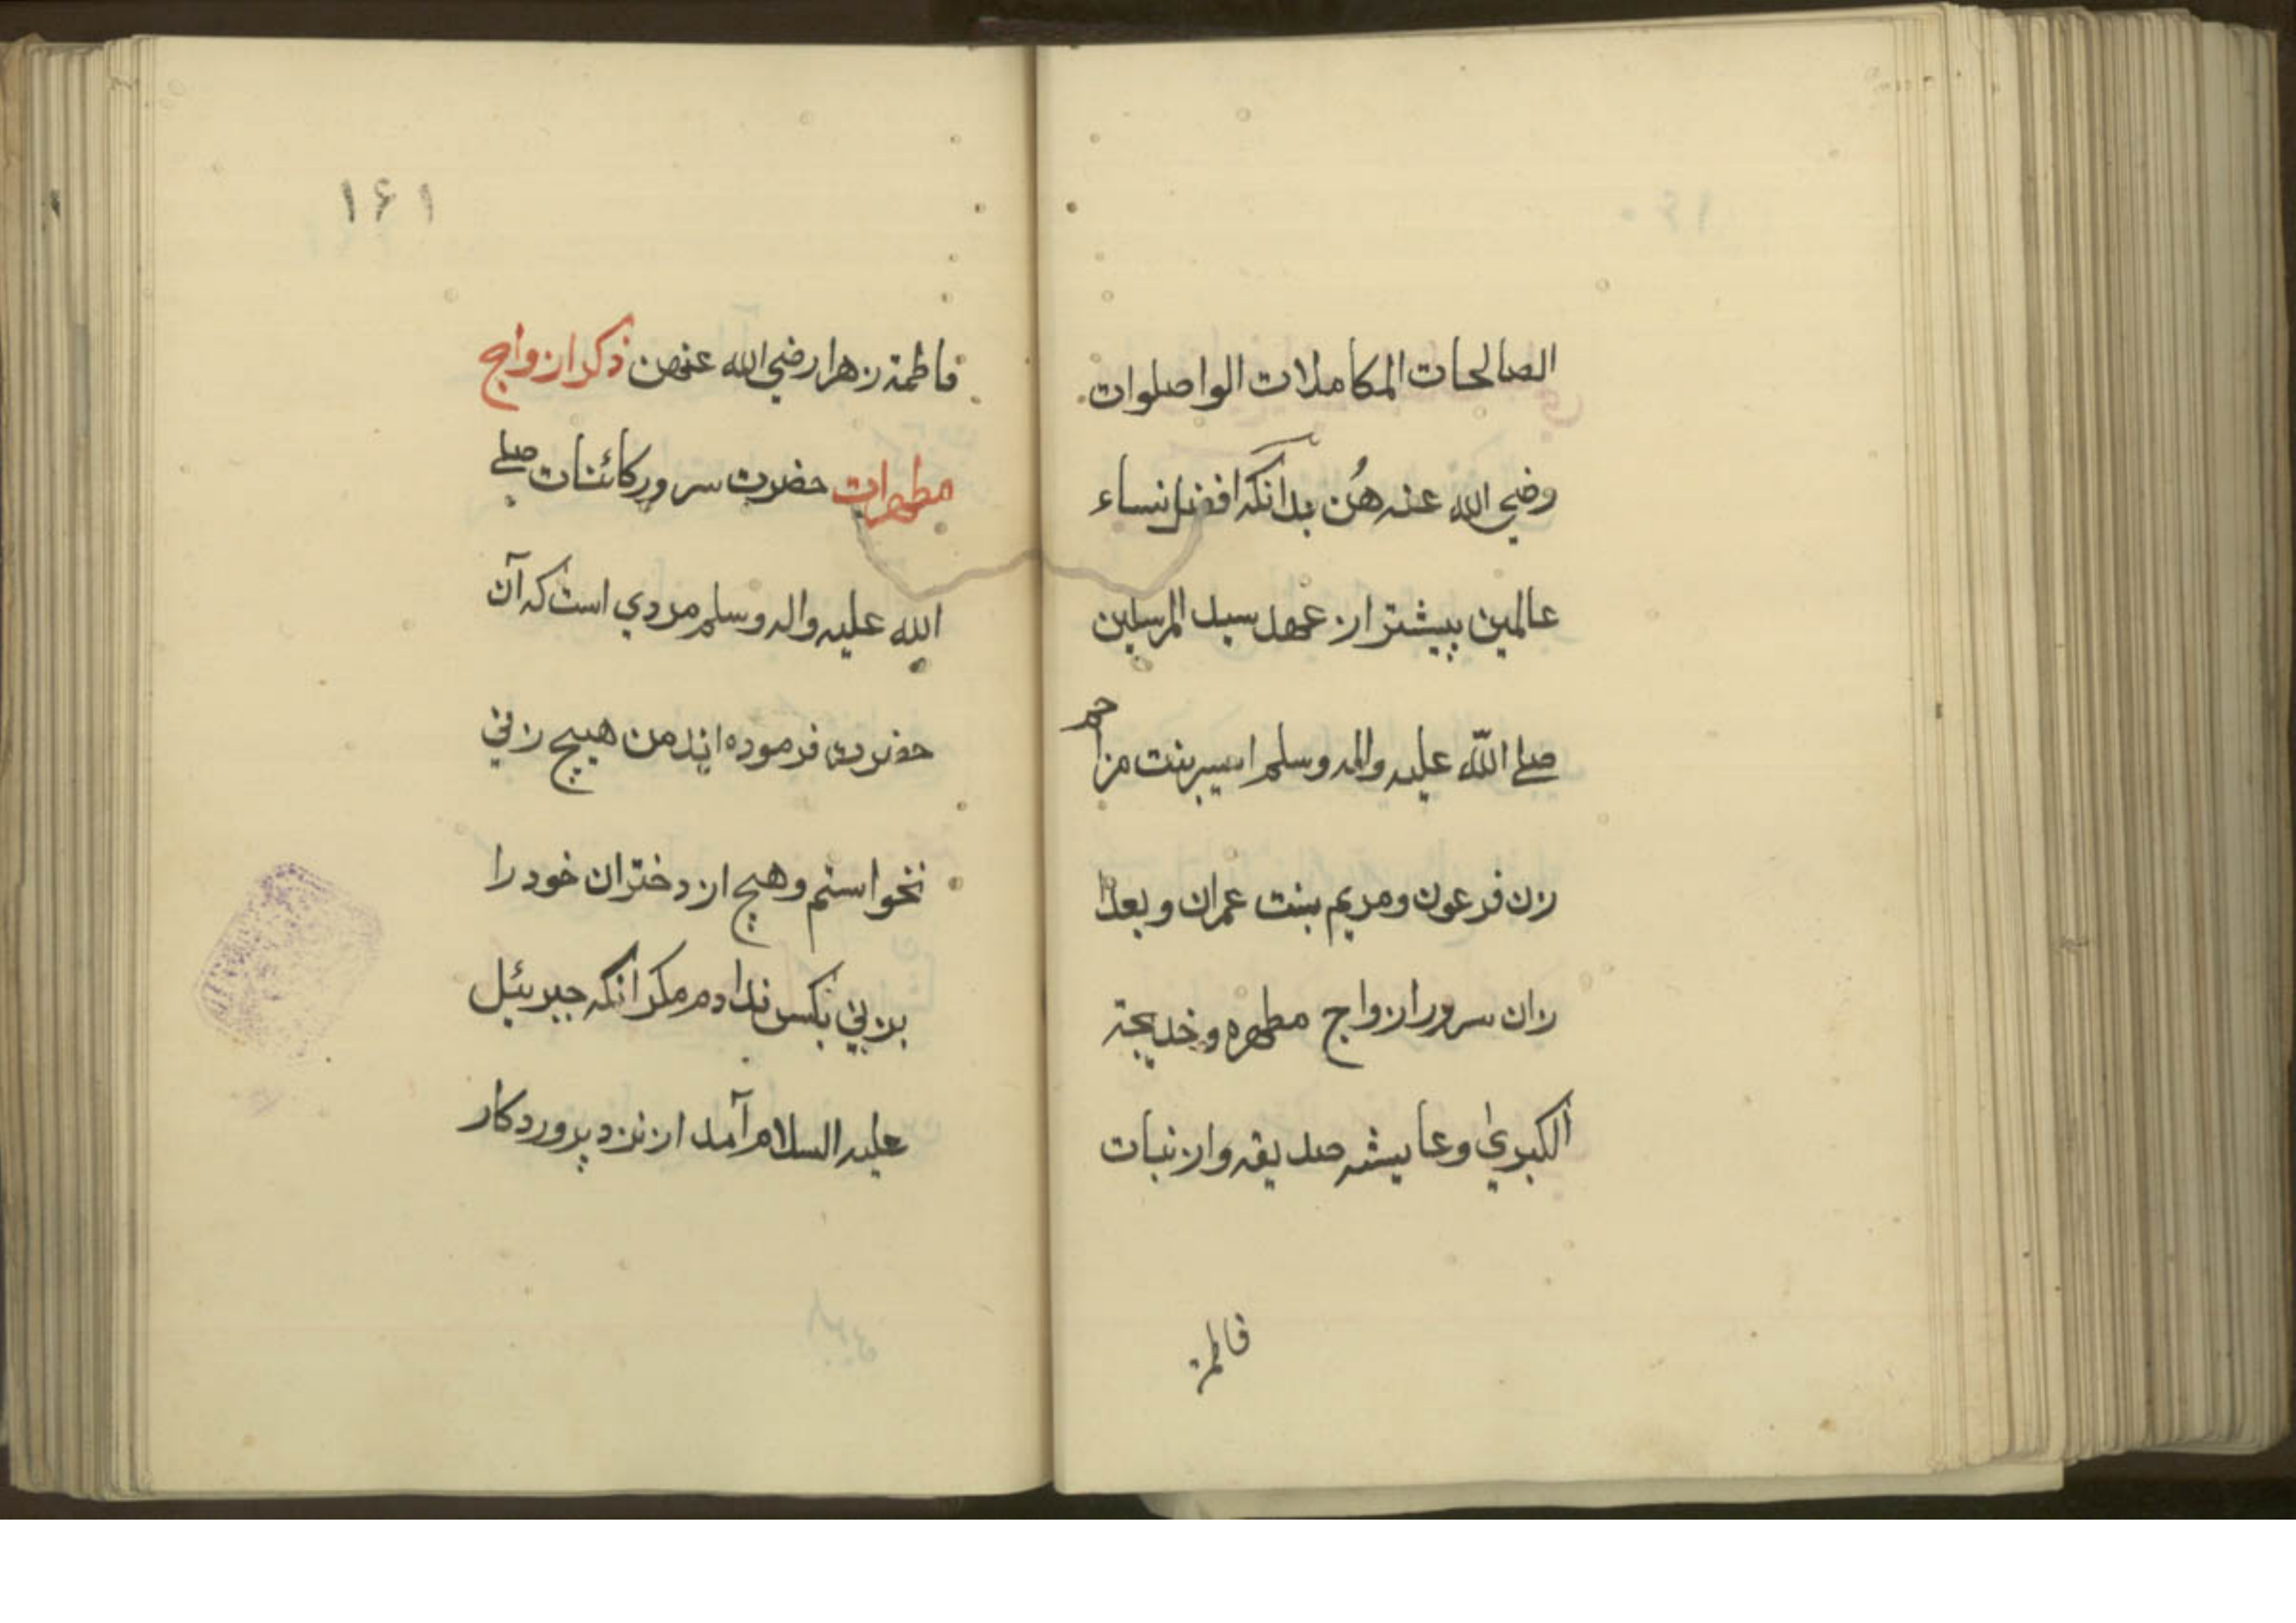 الصالحات المکاملات الواصلوات
وضي الله عنه هُن بدانکه افضل نساء
عالمین پیشتر از عهد سید المرسلین
صلے اللّه علیه واله وسلم اسیر بنت مزاحم
زن فرعون و مریم بنت عمران و بعدا
زان سرور ازواج مطهره و خدیجة
الکبریٰ و عایشه صدیقه و از نبات
فاطمة
۱۶۱
فاطمة زهرا رضي الله عنهن ذکر ازواج
مطهرات حضرت سرور کائنات صلے
الله علیه واله وسلم مردي است که آن
حضرت فرموده اند من هیچ زني
نخواستم و هیچ از دختران خود را
بزني بکس ندادم مکر انکه جبرئیل
علیه السلام آمد از نزد پروردکار